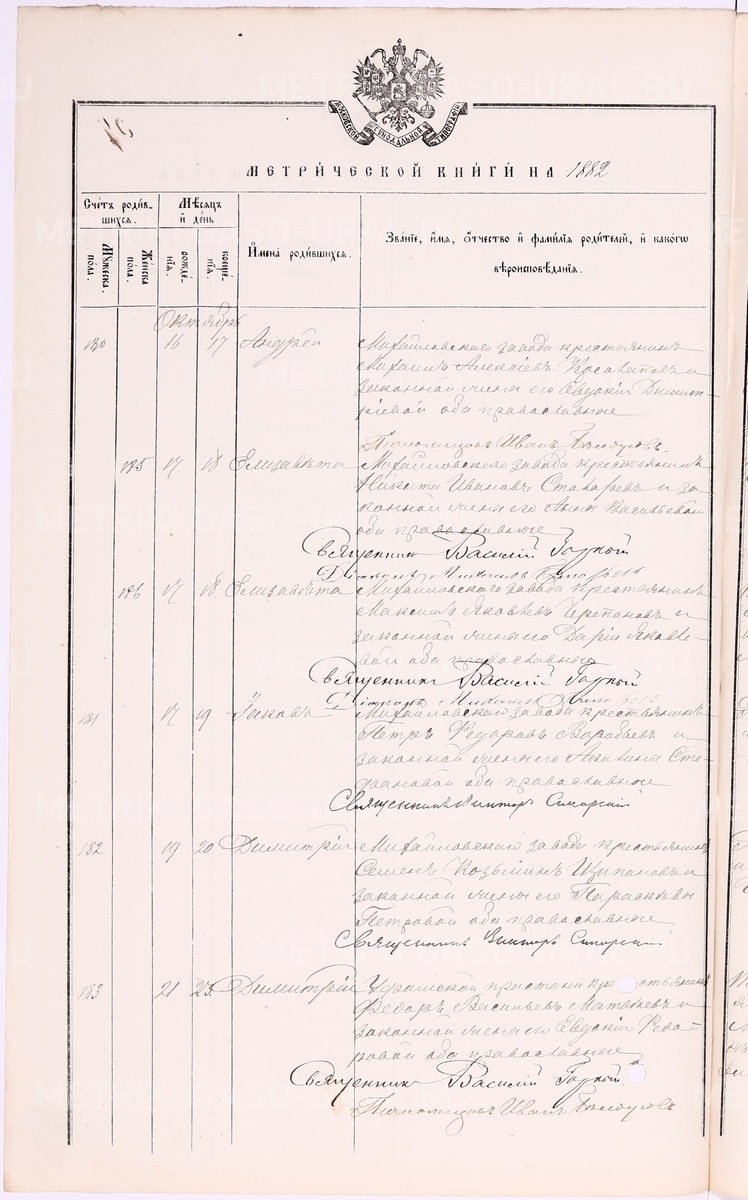 МЕТРИ́ЧЕСКОЙ КНИ́ГИ НА 1882
Сче́тъ роди́в-
шихся.
Мѣ́сяцъ
и҆ де́нь
И҆мена̀ роди́вшихся.
Зва́нїе, и҆́мѧ, ѻ҆́тчество и҆ фами́лїѧ роди́телей, и҆ како́гѡ
вѣроисповѣ́данїѧ.
Мꙋ́жеска
по́ла.
Же́нска
по́ла.
рожде́-
нїѧ.
креще́-
нїѧ.
Октябрь
180 16 17 Андрей Михайловскаго завода крестьянинъ
Михаилъ Алексѣевъ и
законной жены его Евдокіи Димит-
ріевой оба православные
Псаломщикъ Иванъ
185 17 18 Елизавета Михайловскаго завода крестьянинъ
Никита Ивановъ и за-
конной жены его Анны Васильевой
оба православные
Священникъ Василій
Діаконъ
186 17 18 Елизавета Михайловскаго завода крестьянинъ
Максимъ Яковлевъ Черепановъ и
законной жены его Даріи Яковле-
вой оба православные
Священникъ Василій
Діаконъ
181 17 19 Іаковъ Михайловскаго завода крестьянинъ
Петръ Федоровъ Воробьевъ и
законной жены его Акилины Сте-
фановой оба православные
Священникъ Викторъ
182 19 20 Димитрій Михайловскаго завода крестьянинъ
Семенъ Козьминъ Щипановъ и
законной жены его Параскевы
Петровой оба православные
Священникъ Викторъ
183 21 23 Димитрій Уфимской пристани крестьянинъ
Федоръ Васильевъ Матвѣевъ и
законной жены его Евдокіи Федо-
ровой оба православные
Священникъ Василій
Псаломщикъ Иванъ